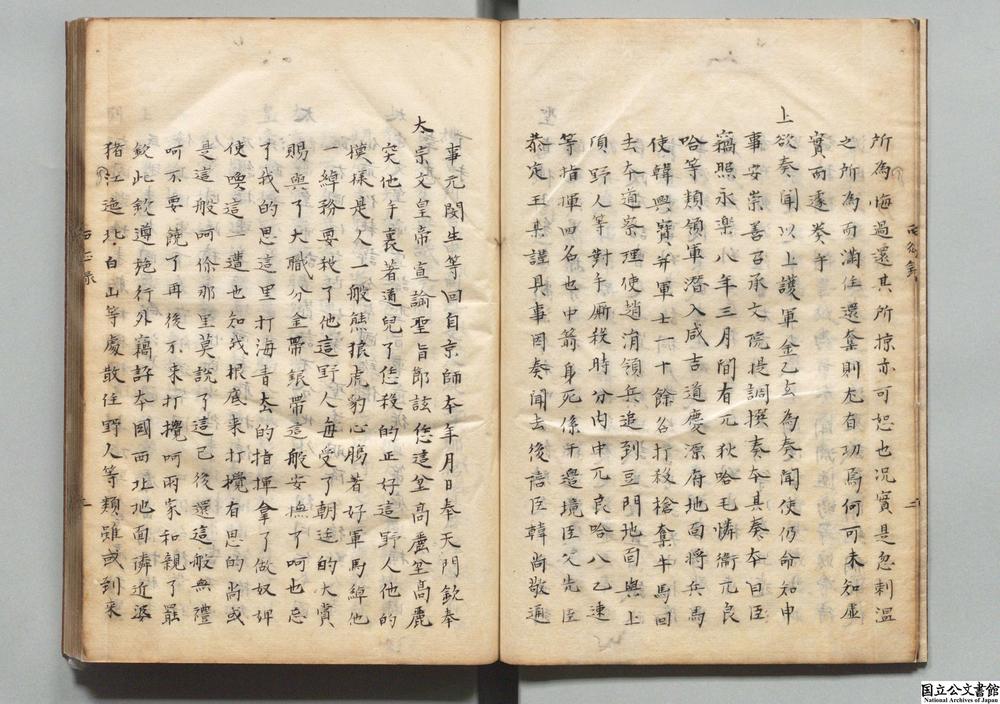 所為悔過還其所掠亦可恕也况實是忽剌溫
之所為而滿住還奪則尤有功焉何可未知虛
實而遽發乎
上欲奏聞以上護軍金乙玄為奏聞使仍命知申
事安崇善召承文院提調撰奏本其奏本曰臣
竊照永樂八年三月間有兀狄哈毛憐衛兀良
哈等類領軍潛入咸吉道慶源府地面將兵馬
使韓興寶并軍士一十餘名打殺搶奪牛馬回
去本道察理使趙涓領兵追到豆門地面與上
項野人等對手廝殺時分內中兀良哈八乙速
等指揮四名也中箭身死係干邊境臣父先臣
恭定王某謹具事因奏聞去後陪臣韓尚敬通
事元閔生等回自京師本年月日奉天門欽奉
太宗文皇帝宣諭聖旨節該恁這坌高麗坌高麗
突他手裏著道兒了恁殺的正好這野人他的
模樣是人一般熊狼虎豹心腸著好軍馬綽他
一綽務要殺了他這野人每受了朝廷的大賞
賜與了大職分金帶銀帶這般安撫了呵也忘
了我的恩這里打海青去的指揮拿了做奴婢
使喚這一遭也知我根底來打攪有恩的尚或
是這般呵你那里莫說了這已後還這般無禮
呵不要饒了再後不來打攪呵兩家和親了罷
欽此欽遵施行外竊詳本國西北地面隣近婆
猪江迤北白山等處散住野人等類雖或到來
西征録
二
西征录
國立公文書館
National Archives of Japan